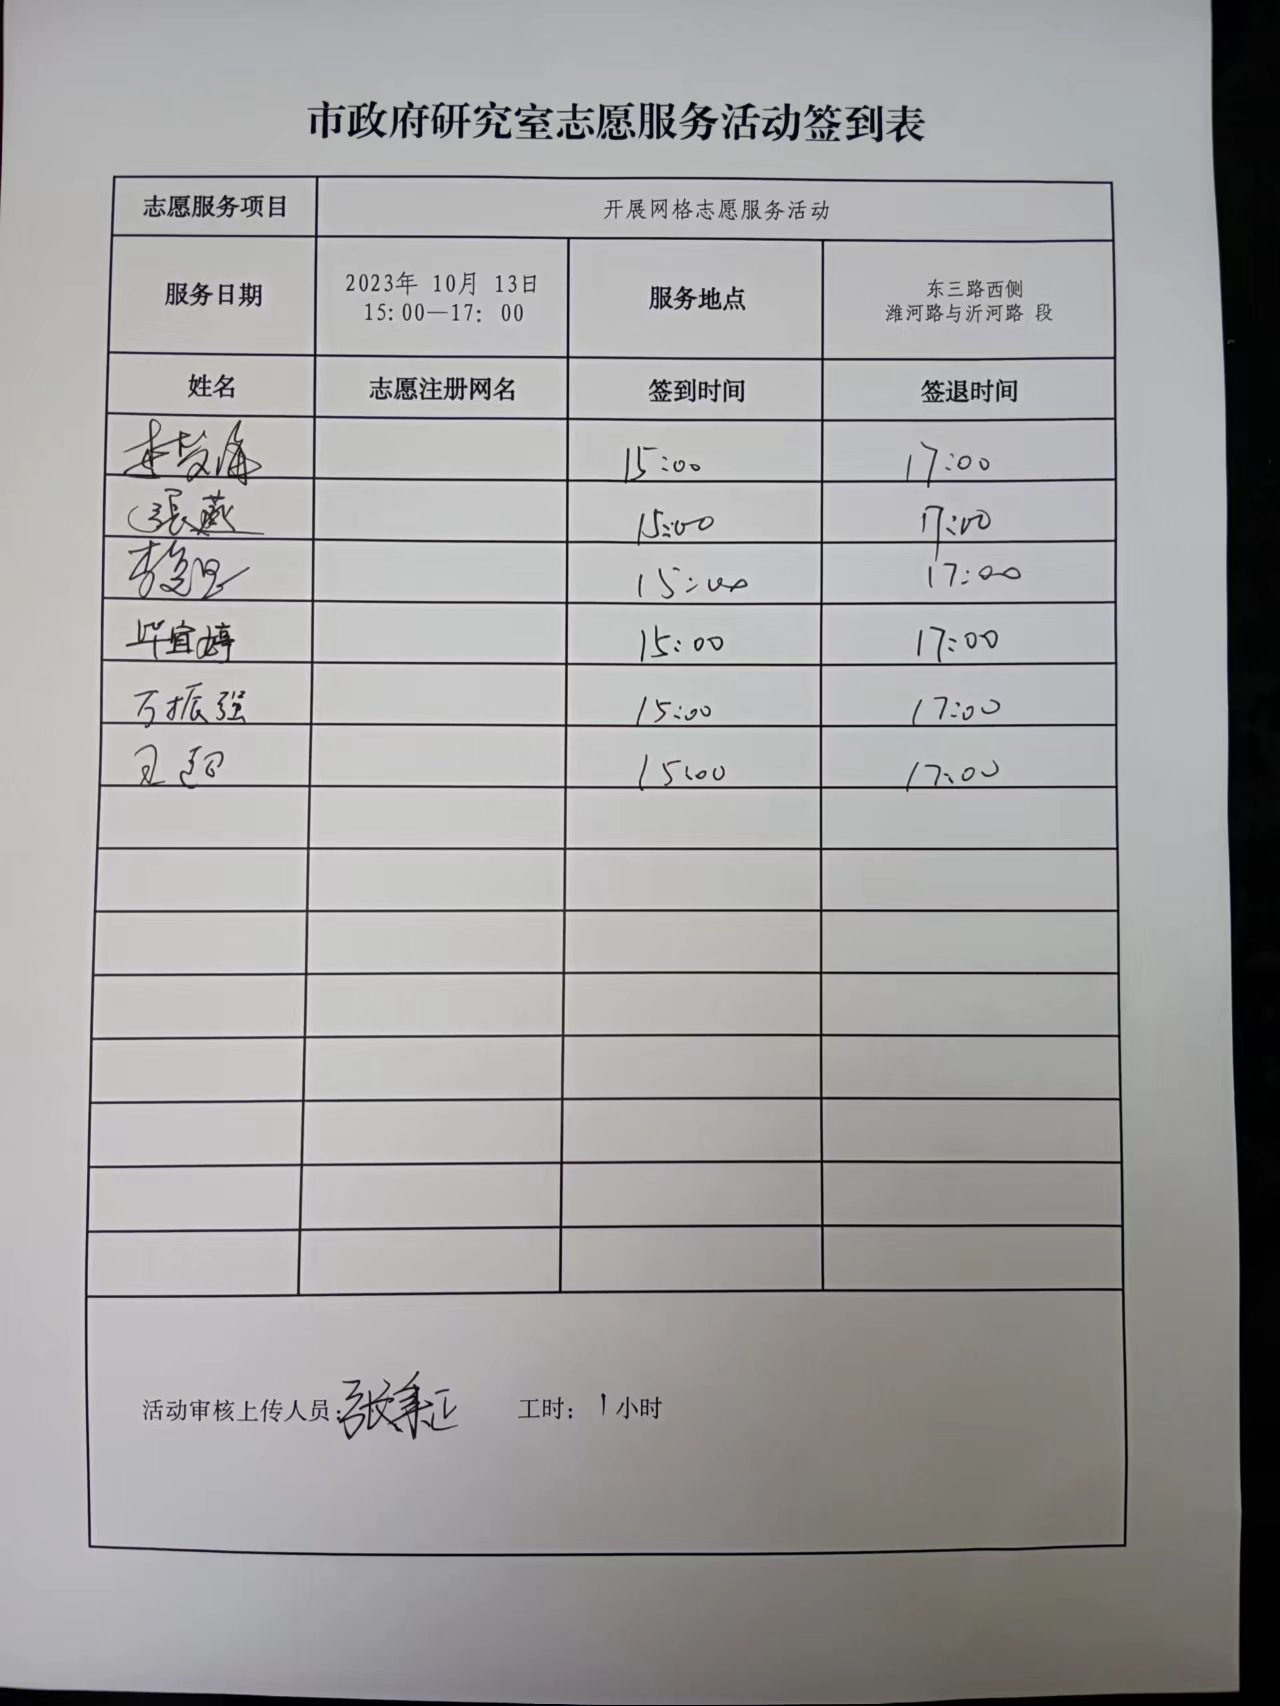 市政府研究室志愿服务活动签到表
志愿服务项目 开展网格志愿服务活动
服务日期 2023年 10月 13日 服务地点 东三路西侧
15:00—17: 00 潍河路与沂河路 段
姓名 志愿注册网名 签到时间 签退时间
15:00 17:00
張燕 15:00 17:00
15:00 17:00
毕宜婷 15:00 17:00
万振强 15:00 17:00
王超 15:00 17:00
活动审核上传人员: 张秉正 工时: 1 小时